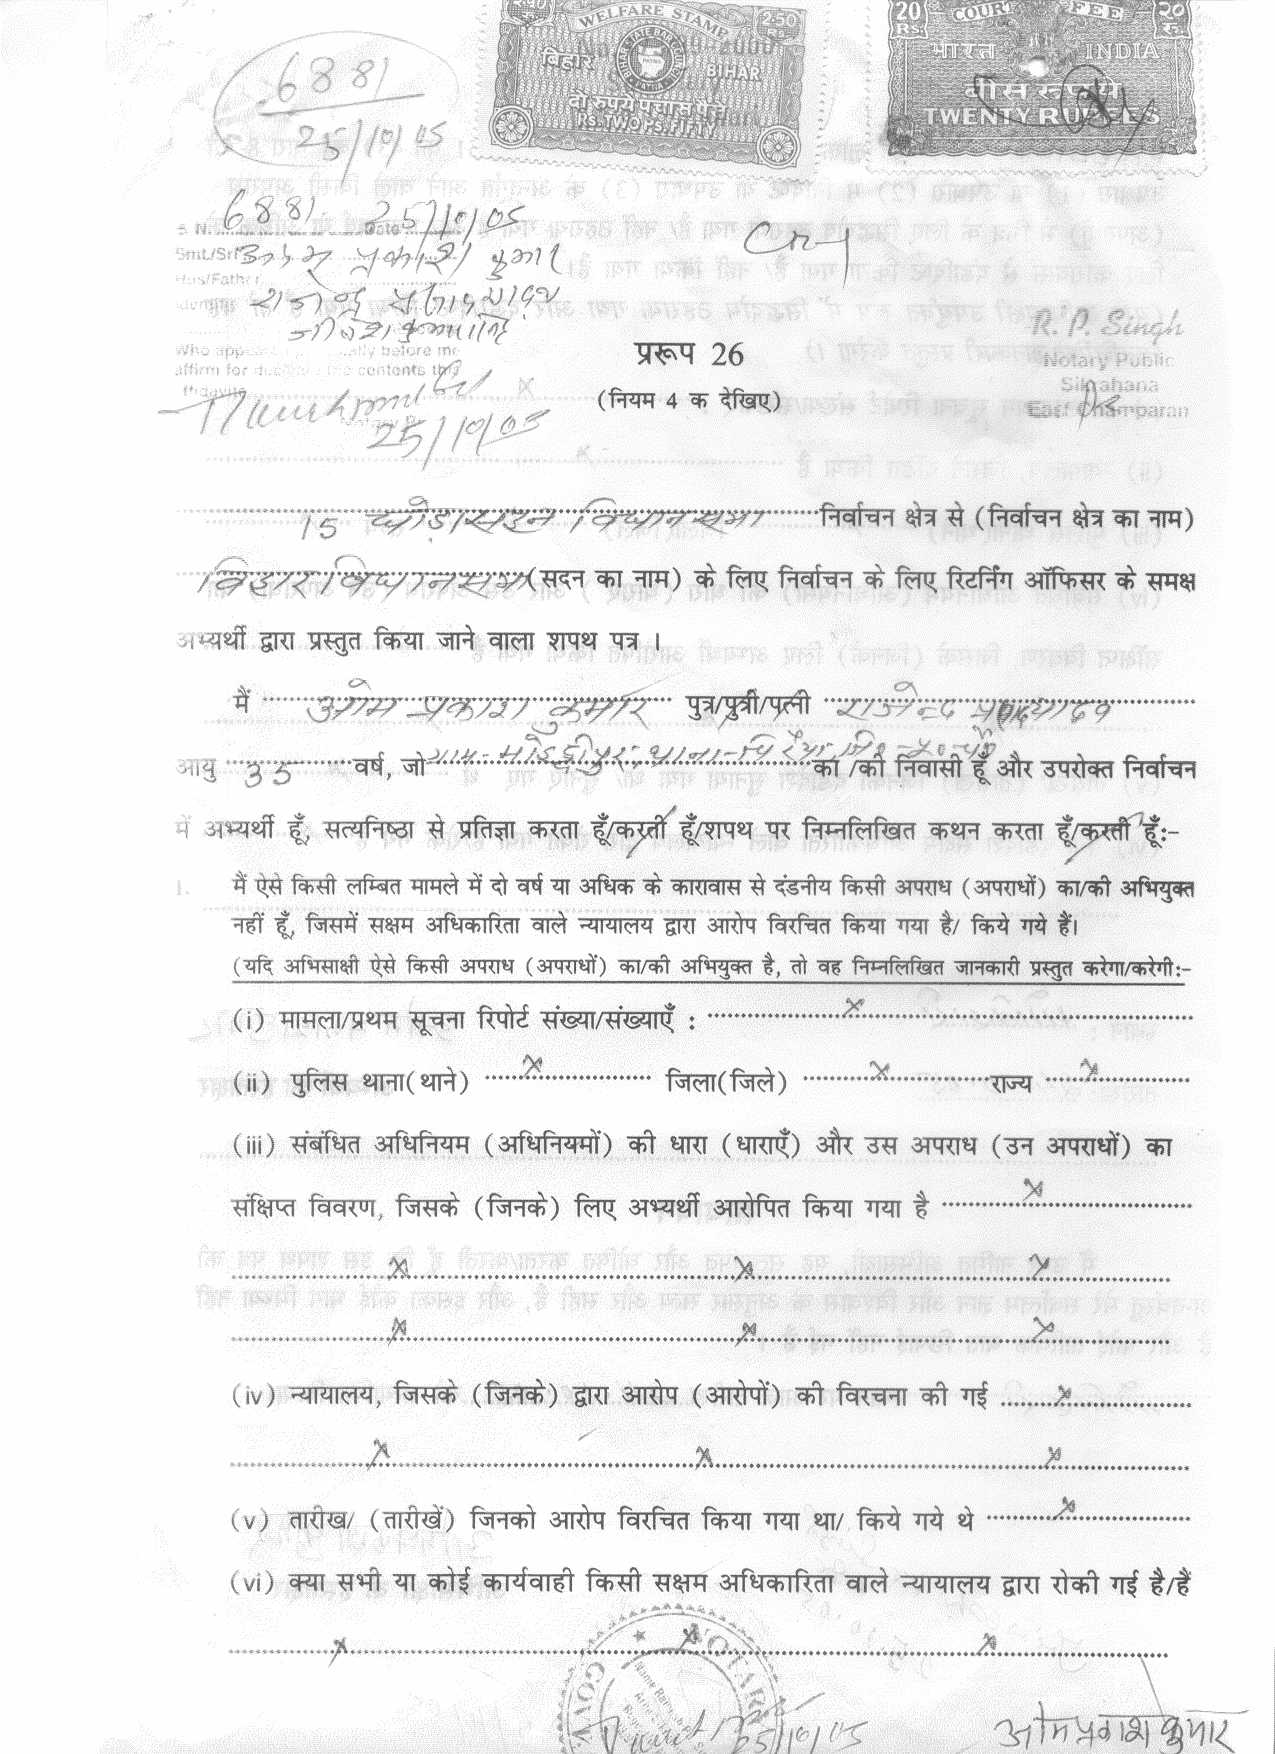 6881
25/10/05
WELFARE STAMP
2.50
बिहार BIHAR
दो रुपये पचास पैसे
RS. TWO PS. FIFTY
20 COURT FEE २०
RS. रु.
भारत INDIA
बीस रुपये
TWENTY RUPEES
S. N. 6881 Date 25/10/05
Smt./Sri ओम प्रकाश कुमार
राजेन्द्र प्रसाद यादव
Who appeared before me
affirm for the contents this
25/10/05
R. P. Singh
Notary Public
Sikrahana
East Champaran
प्ररूप 26
(नियम 4 क देखिए)
15 घोड़ासहन विधान सभा निर्वाचन क्षेत्र से (निर्वाचन क्षेत्र का नाम)
बिहार विधान सभा (सदन का नाम) के लिए निर्वाचन के लिए रिटर्निंग ऑफिसर के समक्ष
अभ्यर्थी द्वारा प्रस्तुत किया जाने वाला शपथ पत्र ।
मैं ओम प्रकाश कुमार पुत्र/पुत्री/पत्नी राजेन्द्र प्रसाद यादव
आयु 35 वर्ष, जो ग्राम- थाना- का /की निवासी हूँ और उपरोक्त निर्वाचन
में अभ्यर्थी हूँ, सत्यनिष्ठा से प्रतिज्ञा करता हूँ/करती हूँ/शपथ पर निम्नलिखित कथन करता हूँ/करती हूँ:-
1. मैं ऐसे किसी लम्बित मामले में दो वर्ष या अधिक के कारावास से दंडनीय किसी अपराध (अपराधों) का/की अभियुक्त
नहीं हूँ, जिसमें सक्षम अधिकारिता वाले न्यायालय द्वारा आरोप विरचित किया गया है/ किये गये हैं।
(यदि अभिसाक्षी ऐसे किसी अपराध (अपराधों) का/की अभियुक्त है, तो वह निम्नलिखित जानकारी प्रस्तुत करेगा/करेगी:-
(i) मामला/प्रथम सूचना रिपोर्ट संख्या/संख्याएँ : x
(ii) पुलिस थाना(थाने) x जिला(जिले) x राज्य x
(iii) संबंधित अधिनियम (अधिनियमों) की धारा (धाराएँ) और उस अपराध (उन अपराधों) का
संक्षिप्त विवरण, जिसके (जिनके) लिए अभ्यर्थी आरोपित किया गया है x
x x x
x x x
(iv) न्यायालय, जिसके (जिनके) द्वारा आरोप (आरोपों) की विरचना की गई x
x x x
(v) तारीख/ (तारीखें) जिनको आरोप विरचित किया गया था/ किये गये थे x
(vi) क्या सभी या कोई कार्यवाही किसी सक्षम अधिकारिता वाले न्यायालय द्वारा रोकी गई है/हैं
x x x
NOTARY
GOVT
25/10/05
ओम प्रकाश कुमार